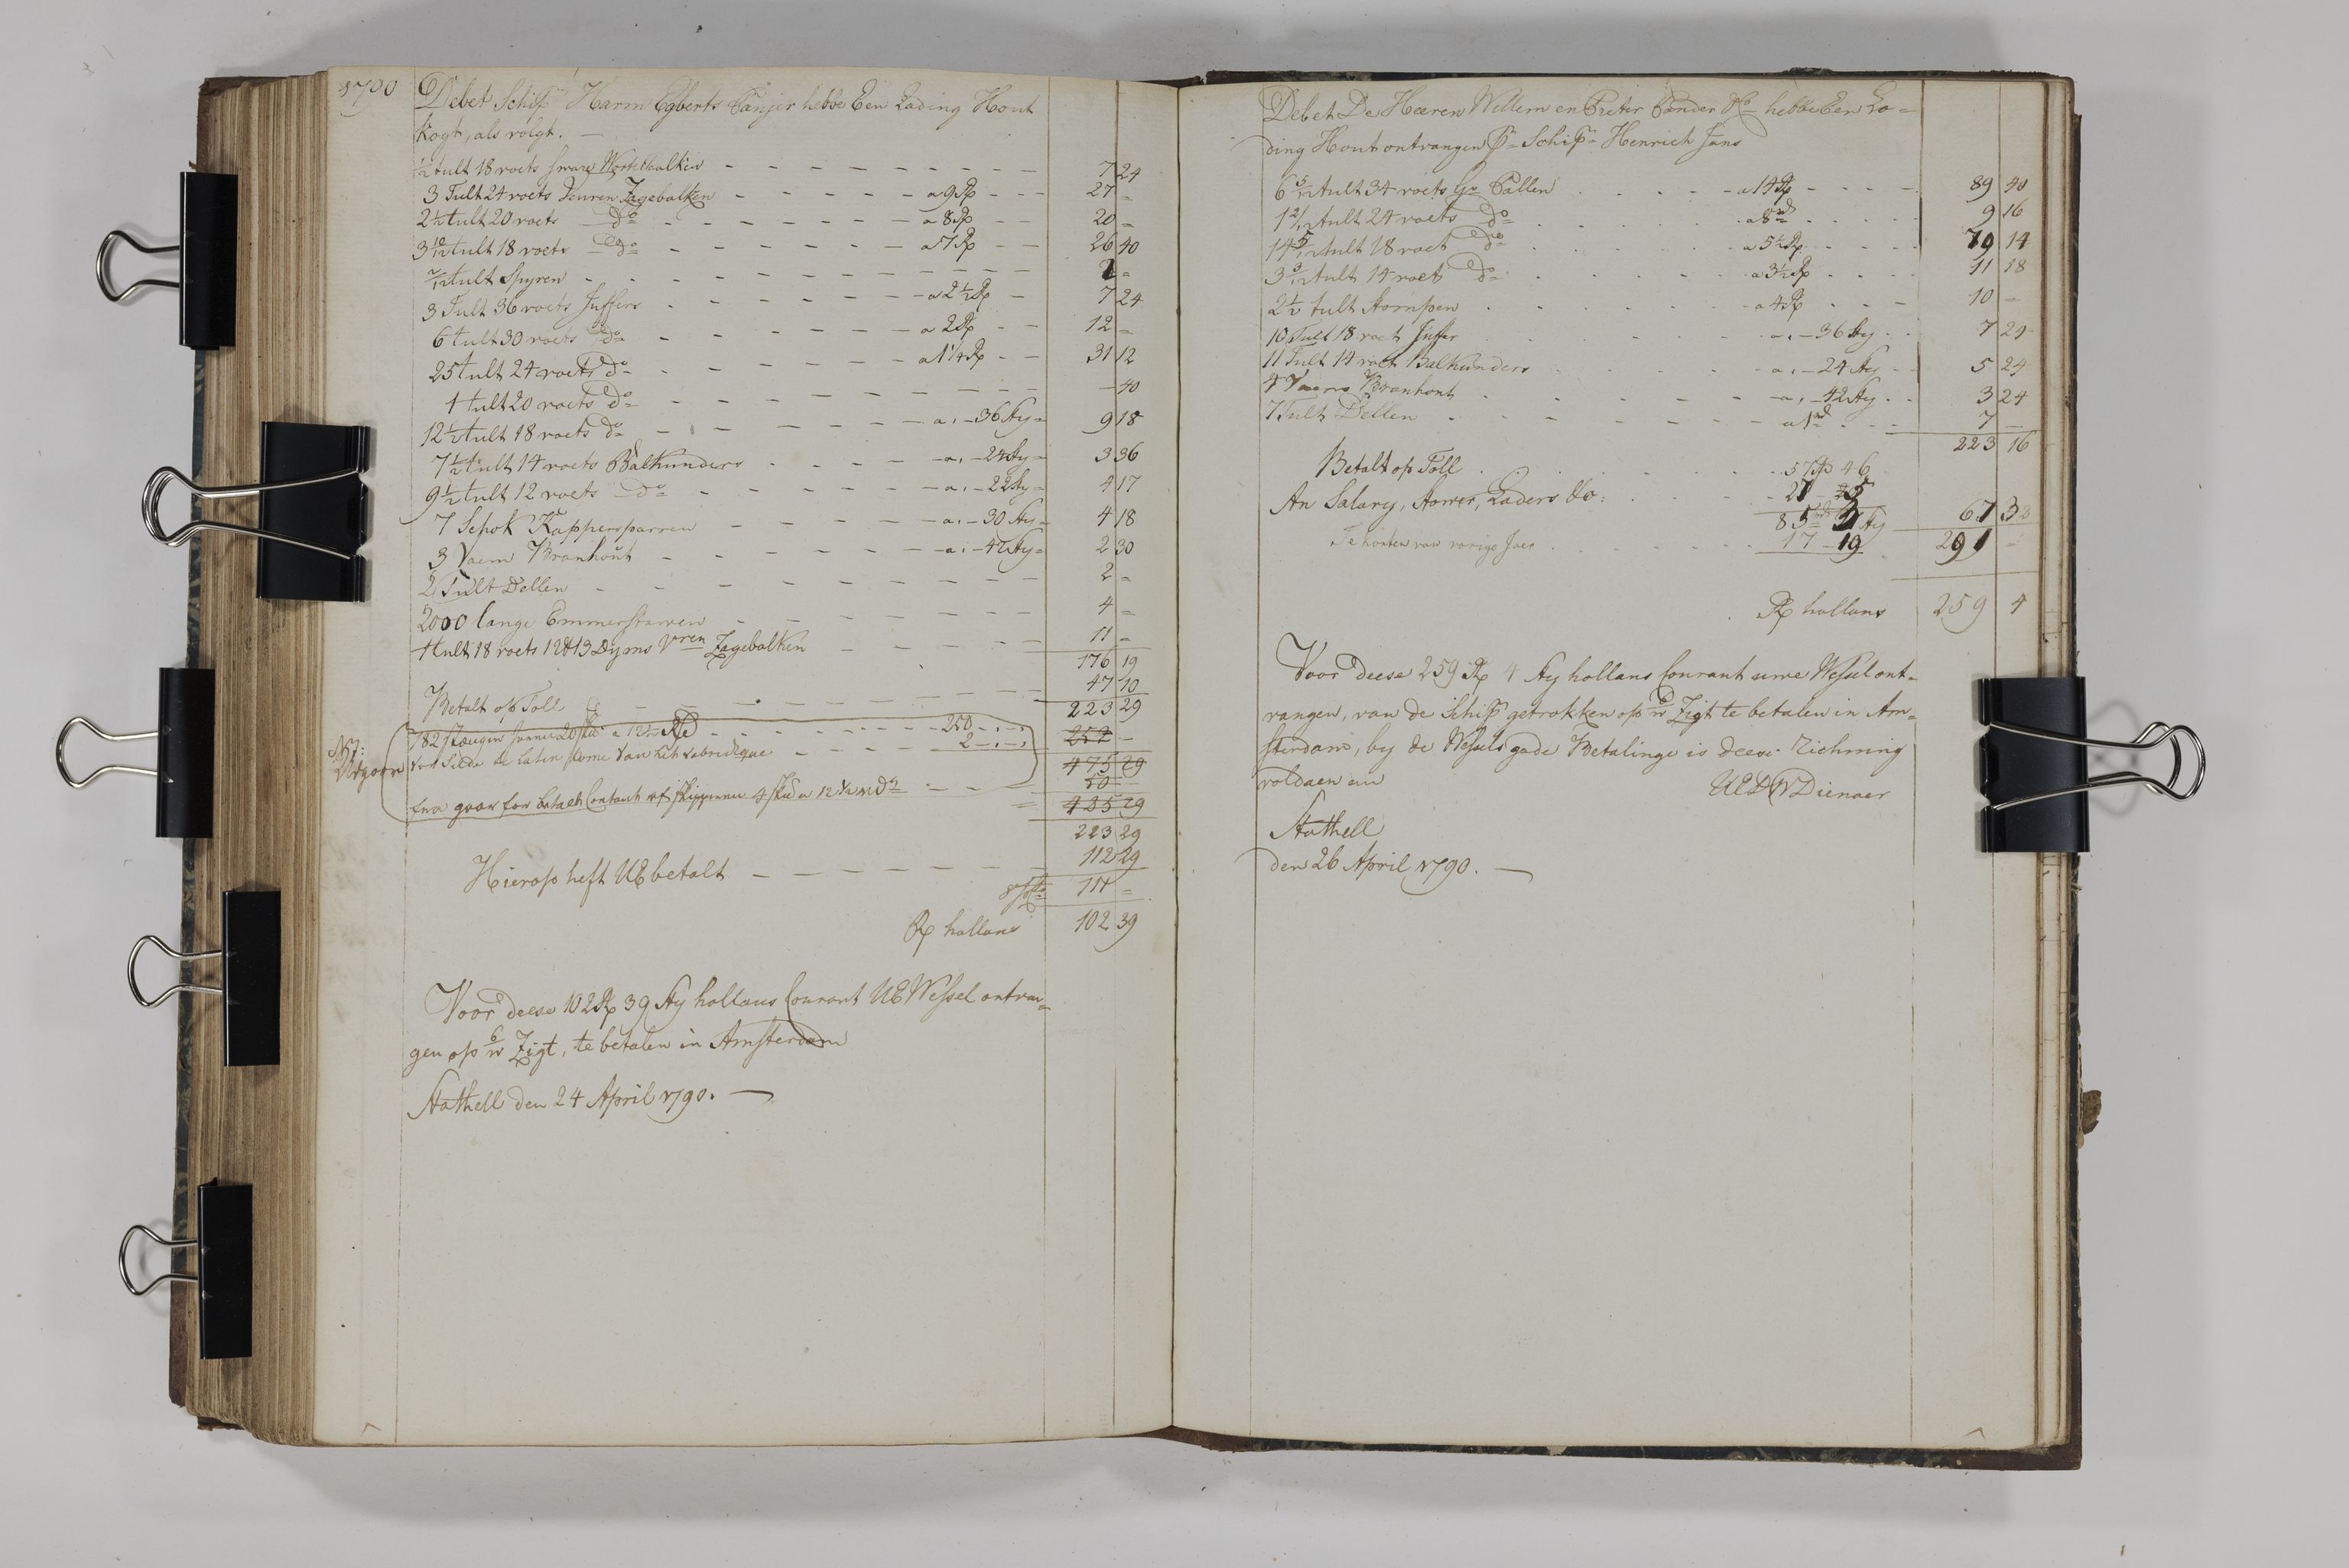 1790 Debet Schipr Harm Egberts Panjer hebbe Een Lading Hout
kogt, als volgt. —
½ tult 18 voets sware Wortelbalken 7 24
3 Tult 24 voets Zagebalken a 9 R 27 =
2½ tult 20 voets do a 8 R 20 =
3 10/12 tult 18 voets do a 7 R 26 40
7/12 tult Spyren =
3 Tult 36 voets Juffers a 2½ R 7 24
6 tult 30 voets do a 2 R 12 =
25 tult 24 voets do a 1¼ R 31 12
1 tult 20 voets do — 40
12½ tult 18 voets do a „ — 36 sty = 9 18
7½ tult 14 voets Balkunders a „ — 24 sty = 3 36
9½ tult 12 voets do a „ — 22 sty = 4 17
7 Schok Kappersparren a „ — 30 sty = 4 18
3 Vaem Branhout a „ — 42 sty = 2 30
2 Tult Dellen 2 =
2000 lange Emmerstaven 4 =
1 tult 18 voets 12 & 13 Dyms Vren Zagebalken 11 =
176 19
Betalt op Toll 47 10
223 29
782 20 a 12½ Rd 250 252 —
Voor 2 475 29
50
for Contant af skipperen 4 a 12½ rd 435 29
223 29
Hierop heft UE betalt 112 29
111 =
R hollans 102 39
Voor deese 102 R 39 sty hollans Courant UE Wessel ontvan=
gen op 6/w Zigt, te betalen in Amsterdam
Stathell den 24 April 1790. —
Debet De Heeren Willem en Pieter Ponder & Co hebbe Een La=
ding Hout ontvangen pr Schipr Henrich Jans
6 5/12 tult 34 voets Gr Ballen a 14 R 89 40
1 2/12 tult 24 voets do a 8 rd 9 16
14 5/12 tult 18 voet do a 5½ R 79 14
3 3/12 tult 14 voet do a 3½ R 11 18
2½ tult Stompen a 4 R 10 —
10 Tult 18 voet Juffer a „ — 36 sty 7 24
11 Tult 14 voet Balkunders a „ — 24 sty 5 24
4 Vaems Branhout a „ — 42 sty 3 24
7 Tult Dellen a 1 rd 7 —
223 16
Betalt op Toll 57 R 46
An Salary, Stower, Laders &c: 27
85 sty 67 32
Te houten van vorige Jaer 17 — 19 291 —
R hollans 259 4
Voor deese 259 R 4 sty hollans Courant uwe Wessel ont=
vangen, van de Schipr getrokken op 6/w Zigt te betalen in Am=
sterdam, by de Wessels gode Betalinge is deese Richning
voldaen en UEDWDienaer
Stathell
den 26 April 1790. —